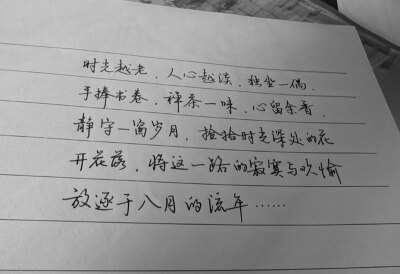 时光越老，人心越淡，独坐一偶，
手捧书卷，禅茶一味，心留余香，
静守一窗岁月，捡拾时光深处的花
开花落，将这一路的寂寞与欢愉
放逐于八月的流年……